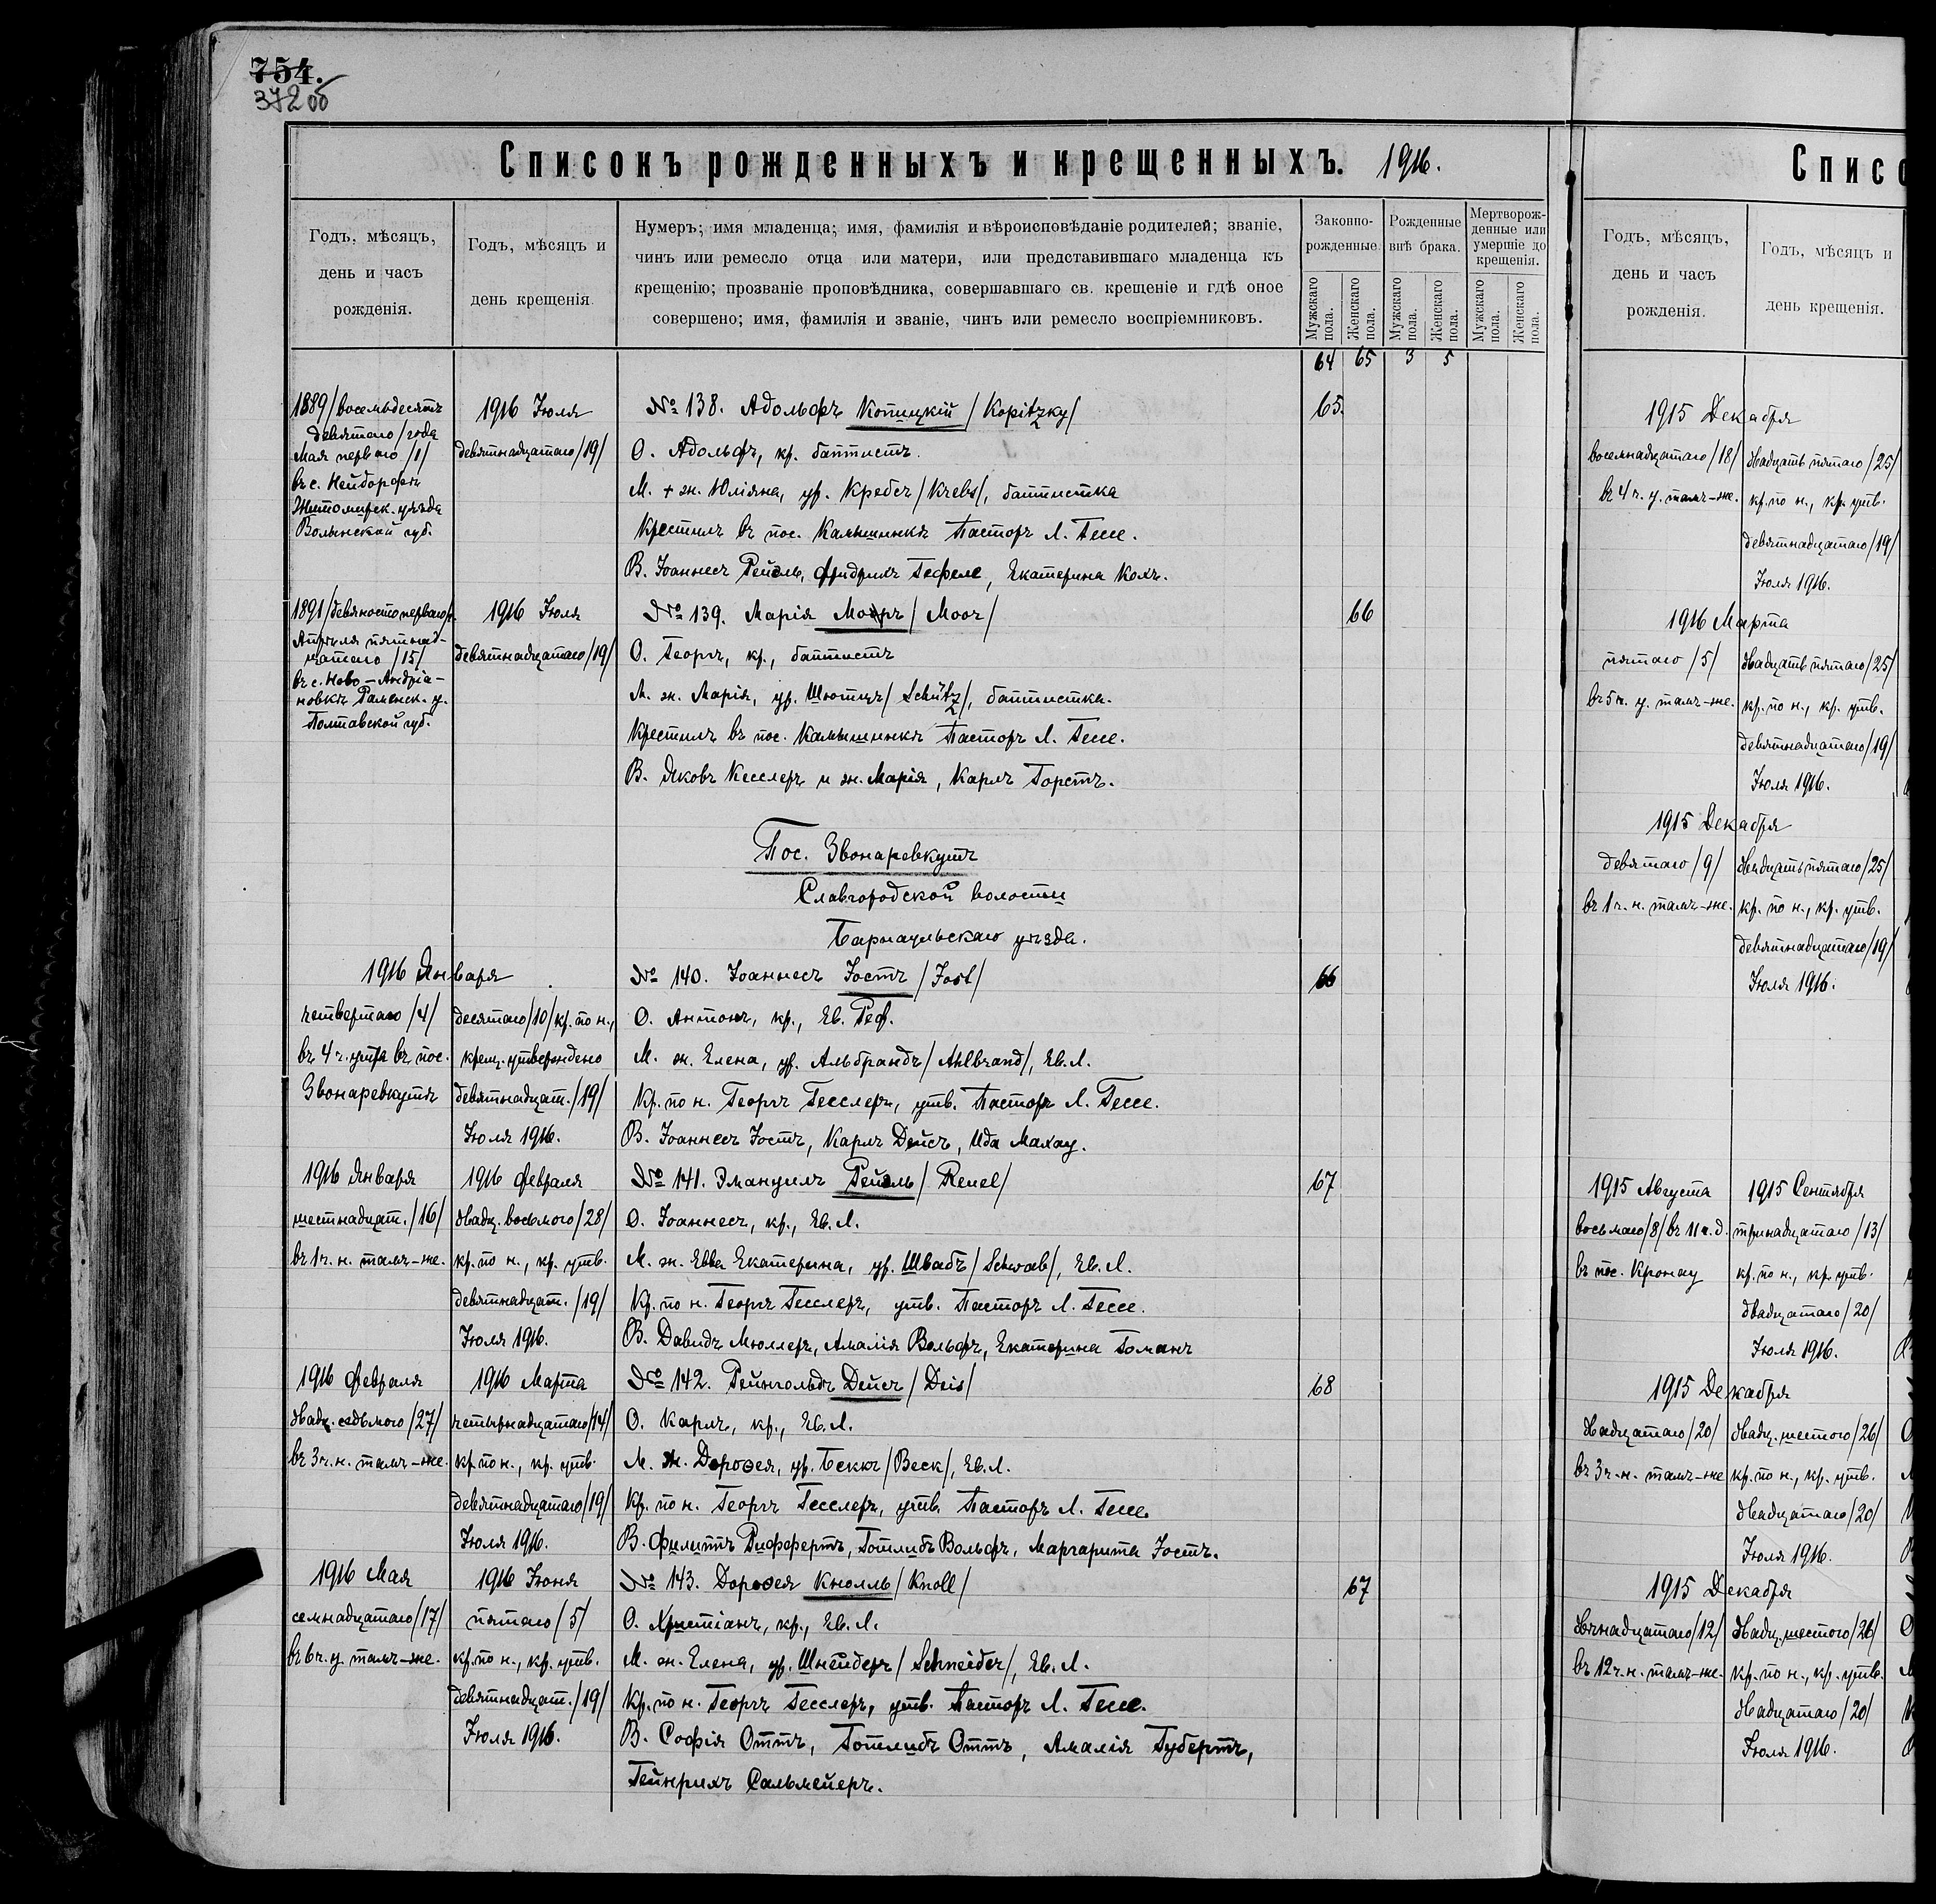 754.
372 об
Списокъ рожденныхъ и крещенныхъ. 1916.
Годъ, мѣсяцъ,
день и часъ
рожденія.
Годъ, мѣсяцъ и
день крещенія.
Нумеръ; имя младенца; имя, фамилія и вѣроисповѣданіе родителей; званіе,
чинъ или ремесло отца или матери, или представившаго младенца къ
крещенію; прозваніе проповѣдника, совершавшаго св. крещеніе и гдѣ оное
совершено; имя, фамилія и званіе, чинъ или ремесло воспріемниковъ.
Законно-
рожденные.
Рожденные
внѣ брака.
Мертворож-
денные или
умершіе до
крещенія.
Мужскаго пола.
Женскаго пола.
Мужскаго пола.
Женскаго пола.
Мужскаго пола.
Женскаго пола.
64 65 3 5
1889/восемьдесятъ
девятаго/года
Мая перваго /1/
въ с. Нейдорфѣ
Житомирск. уѣзда
Волынской губ.
1916 Іюля
девятнадцатаго /19/
№ 138. Адольфъ Копицкій /Kopitzky/
О. Адольфъ, кр. баптистъ.
М. + ж. Юліяна, ур. Кребсъ /Krebs/, баптистка
Крестилъ въ пос. Камышинкѣ Пасторъ Л. Гессе.
В. Іоаннесъ Рейель, Фридрихъ Гефеле, Екатерина Кохъ.
65.
1891/девяностоперваго г.
Апрѣля пятнад-
цатаго /15/
въ с. Ново-Андріа-
новкѣ Раменск. у.
Полтавской губ.
1916 Іюля
девятнадцатаго /19/
№ 139. Марія Мооръ /Moor/
О. Георгъ, кр., баптистъ
М. ж. Марія, ур. Шютцъ /Schütz/, баптистка.
Крестилъ въ пос. Камышинкѣ Пасторъ Л. Гессе.
В. Яковъ Кесслеръ и ж. Марія, Карлъ Горстъ.
66
Пос. Звонаревкутъ
Славгородской волости
Барнаульскаго уѣзда.
1916 Января
четвертаго /4/
въ 4 ч. утра въ пос.
Звонаревкутъ
десятаго /10/ кр. по н.,
крещ. утверждено
девятнадцат. /19/
Іюля 1916.
№ 140. Іоаннесъ Іостъ /Jost/
О. Антонъ, кр., Ев. Реф.
М. ж. Елена, ур. Альбрандъ /Ahlbrand/, Ев. Л.
Кр. по н. Георгъ Гесслеръ, утв. Пасторъ Л. Гессе.
В. Іоаннесъ Іостъ, Карлъ Дейсъ, Ида Махау.
66
1916 Января
шестнадцат. /16/
въ 1 ч. н. тамъ-же.
1916 Февраля
двадц. восьмого /28/
кр. по н., кр. утв.
девятнадцат. /19/
Іюля 1916.
№ 141. Эмануилъ Рейель /Reuel/
О. Іоаннесъ, кр., Ев. Л.
М. ж. Евва Екатерина, ур. Швабъ /Schwab/, Ев. Л.
Кр. по н. Георгъ Гесслеръ, утв. Пасторъ Л. Гессе.
В. Давидъ Мюллеръ, Амалія Вольфъ, Екатерина Гоманъ
67
1916 Февраля
двадц. седьмого /27/
въ 3 ч. н. тамъ-же
1916 Марта
четырнадцатаго /14/
кр по н., кр. утв.
девятнадцатаго /19/
Іюля 1916.
№ 142. Рейнгольдъ Дейсъ /Deis/
О. Карлъ, кр., Ев. Л.
М. ж. Дороѳея, ур. Беккъ /Beck/, Ев. Л.
Кр. по н. Георгъ Гесслеръ, утв. Пасторъ Л. Гессе.
В. Филиппъ Рифффертъ, Готлибъ Вольфъ, Маргарита Іостъ.
68
1916 Мая
семнадцатаго /17/
въ 6 ч. у. тамъ-же.
1916 Іюня
пятаго /5/
кр. по н., кр. утв.
девятнадцат. /19/
Іюля 1916.
№ 143. Дороѳея Кнолль /Knoll/
О. Христіанъ, кр., Ев. Л.
М. ж. Елена, ур. Шнейдеръ /Schneider/, Ев. Л.
Кр. по н. Георгъ Гесслеръ, утв. Пасторъ Л. Гессе.
В. Софія Оттъ, Готлибъ Оттъ, Амалія Губертъ,
Гейнрихъ Сальмейеръ.
67
Списо
Годъ, мѣсяцъ,
день и часъ
рожденія.
Годъ, мѣсяцъ и
день крещенія.
1915 Декабря
восемнадцатаго /18/
въ 4 ч. у. тамъ-же.
двадцать пятаго /25/
кр. по н., кр. утв.
девятнадцатаго /19/
Іюля 1916.
1916 Марта
пятаго /5/
въ 5 ч. у. тамъ-же.
двадцать пятаго /25/
кр. по н., кр. утв.
девятнадцатаго /19/
Іюля 1916.
1915 Декабря
девятаго /9/
въ 1 ч. н. тамъ-же.
двадцать пятаго /25/
кр. по н., кр. утв.
девятнадцатаго /19/
Іюля 1916.
1915 Августа
восьмаго /8/ въ 11 ч. д.
въ пос. Кронау
1915 Сентября
тринадцатаго /13/
кр. по н., кр. утв.
двадцатаго /20/
Іюля 1916.
1915 Декабря
двадцатаго /20/
въ 3 ч. н. тамъ-же
двадц. шестого /26/
кр. по н., кр. утв.
двадцатаго /20/
Іюля 1916.
1915 Декабря
двѣнадцатаго /12/
въ 12 ч. н. тамъ-же.
двадц. шестого /26/
кр. по н., кр. утв.
двадцатаго /20/
Іюля 1916.